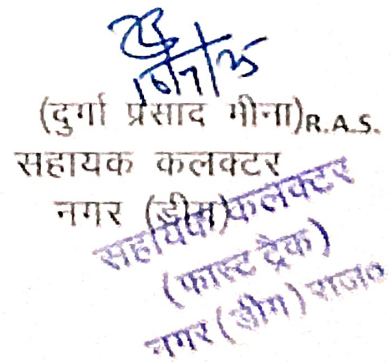 16/7/25
(दुर्गा प्रसाद मीना)R.A.S.
सहायक कलक्टर
नगर (डीग)
सहायक कलक्टर
(फास्ट ट्रैक)
नगर (डीग) राज०